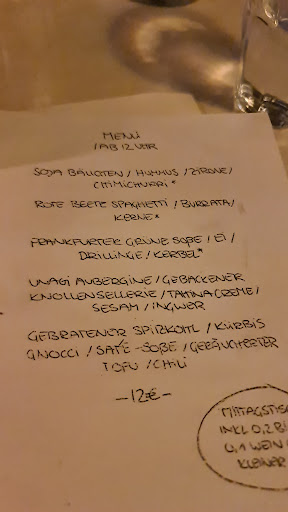 MENÜ
/AB 12 UHR
SOJA BÄLLCHEN / HUMMUS / ZITRONE /
CHIMICHURRI *
ROTE BEETE SPAGHETTI / BURRATA /
KERNE *
FRANKFURTER GRÜNE SOßE / EI /
DRILLINGE / KERBEL *
UNAGI AUBERGINE / GEBACKENER
KNOLLENSELLERIE / TAHINA CREME /
SESAM / INGWER
GEBRATENER SPITZKOHL / KÜRBIS
GNOCCI / SATÉ-SOßE / GERÄUCHERTER
TOFU / CHILI
-12€-
MITTAGSTISCH
INKL 0,2
0,1 WEIN
KLEINER